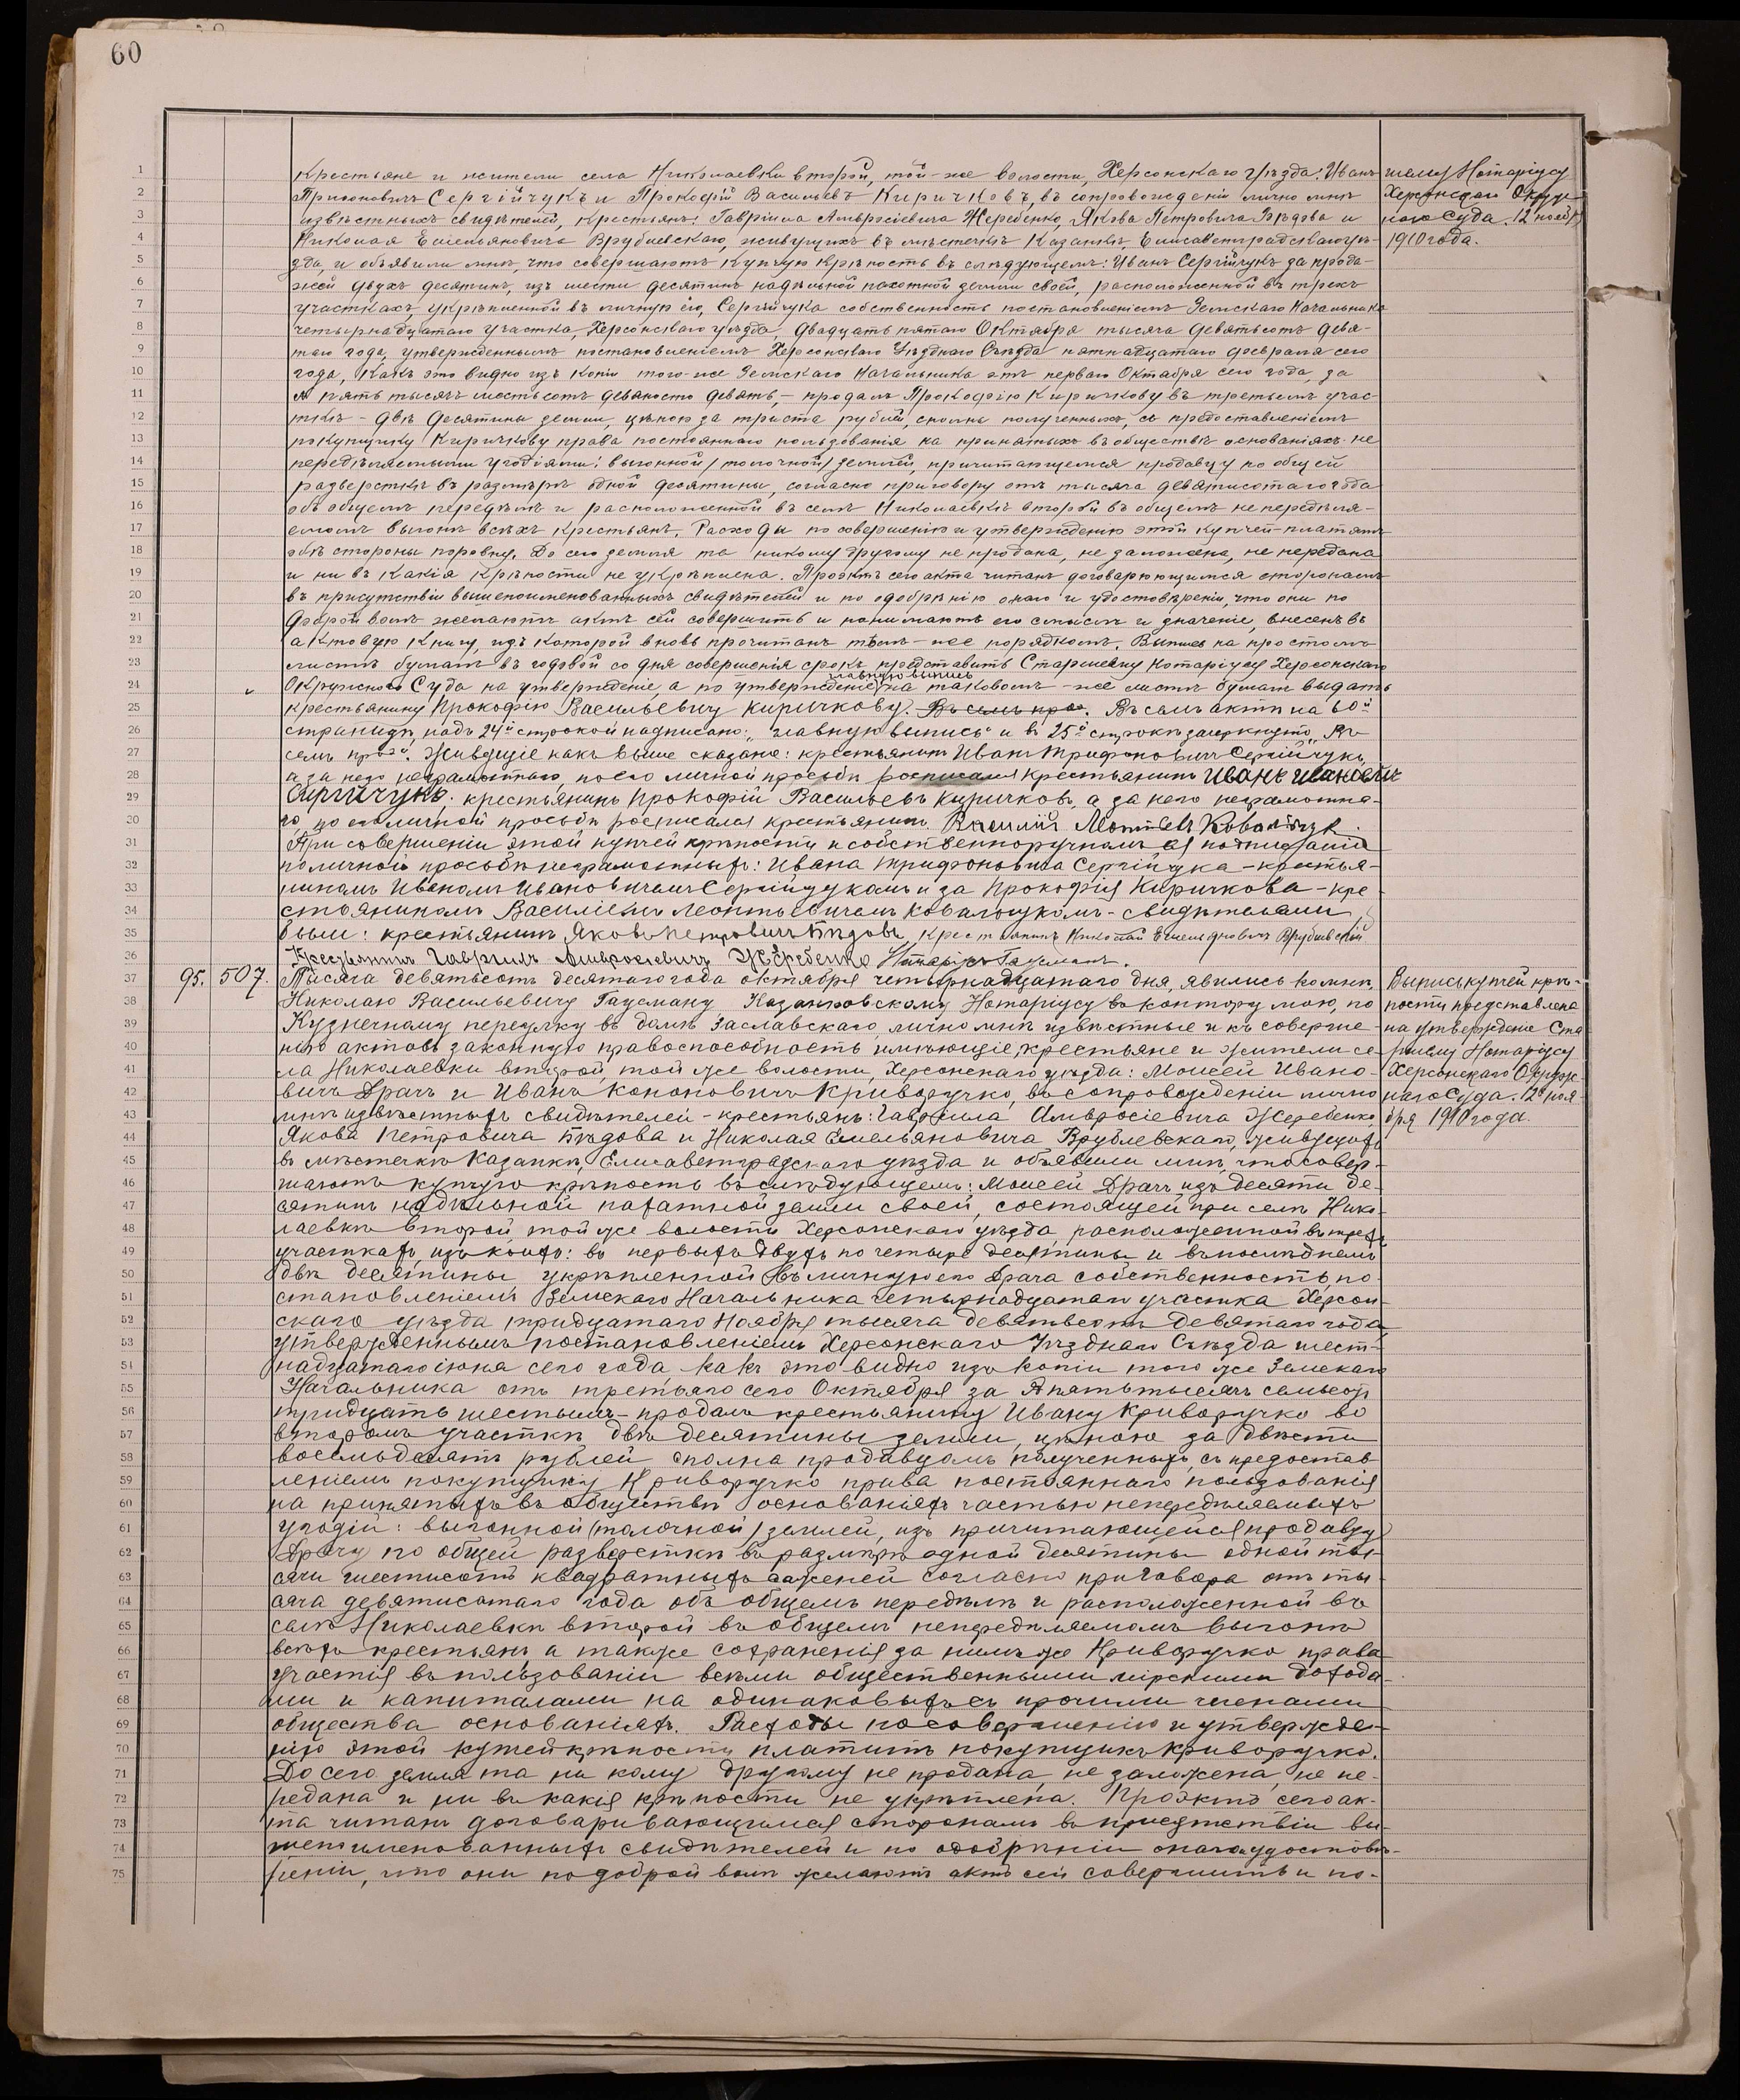 60
крестьяне и жители села Николаевки второй, той-же волости, Херсонскаго уѣзда: Иванъ
Трифоновичъ Сергійчукъ и Прокофій Васильевъ Киричковъ, въ сопровожденіи лично мнѣ
извѣстныхъ свидѣтелей, крестьянъ: Гавріила Амвросіевича Жеребенко, Якова Петровича Бѣдова и
Николая Емельяновича Врублевскаго, живущихъ въ мѣстечкѣ Казанкѣ, Елисаветградскаго уѣ-
зда, и объявили мнѣ, что совершаютъ купчую крѣпость въ слѣдующемъ: Иванъ Сергійчукъ за прода-
жей двухъ десятинъ, изъ шести десятинъ надѣльной пахотной земли своей, расположенной въ трехъ
участкахъ, укрѣпленной въ личную его, Сергійчука собственность постановленіемъ Земскаго Начальника
четырнадцатаго участка, Херсонскаго уѣзда, двадцать пятаго Октября тысяча девятьсотъ девя-
таго года, утвержденнымъ постановленіемъ Херсонскаго Уѣзднаго Съѣзда пятнадцатаго февраля сего
года, какъ это видно изъ копіи того-же Земскаго Начальника отъ перваго Октября сего года, за
№ пять тысячъ шестьсотъ девяносто девять, - продалъ Прокофію Киричкову въ третьемъ учас-
ткѣ - двѣ десятины земли, цѣною за триста рублей, сполна полученныхъ, съ предоставленіемъ
покупщику Киричкову права постояннаго пользованія на принятыхъ въ обществѣ основаніяхъ не
передѣляемыми угодіями: выгонной (толочной) землей, причитающемся продавцу по общей
разверсткѣ въ размѣрѣ одной десятины, согласно приговору отъ тысяча девятисотаго года
объ общемъ передѣлѣ и расположенной въ селѣ Николаевкѣ второй въ общемъ не передѣля-
емомъ выгонѣ всѣхъ крестьянъ. Расходы по совершенію и утвержденію этой купчей-платятъ
обѣ стороны поровну. До сего земля та никому другому не продана, не заложена, не передана
и ни въ какія крѣпости не укрѣплена. Проэктъ сего акта читанъ договарюющимся сторонамъ
въ присутствіи вышепоименованныхъ свидѣтелей и по одобренію онаго и удостовѣреніи, что они по
доброй волѣ желаютъ актъ сей совершить и понимаютъ его смыслъ и значеніе, внесенъ въ
актовую книгу, изъ которой вновь прочитанъ тѣмъ-же порядкомъ. Выпись на простомъ
листѣ бумаги въ годовой со дня совершенія срокъ представить Старшему Нотаріусу Херсонскаго
главную выпись
Окружного Суда на утвержденіе, а по утвержденіи на таковомъ-же листѣ бумаги выдать
крестьянину Прокофію Васильевичу Киричкову. Въ семъ про. Въ семъ актѣ на 60й
страницѣ, надъ 24й строкой надписано: „главную выпись" и въ 25й строкѣ зачеркнуто „Въ
семъ про". Живущіе какъ выше сказано: крестьянинъ Иванъ Трифоновичъ Сергійчукъ,
а за него неграмотнаго, по его личной просьбѣ росписался крестьянинъ Иванъ Ивановичъ
Сиргійчукъ. крестьянинъ Прокофій Васильевъ Киричковъ, а за него неграмотна-
го, по его личной просьбѣ росписался крестьянинъ Василій Леонтьевъ Ковальчукъ.
При совершеніи этой купчей крѣпости и собственноручномъ ея подписаніи
по личной просьбѣ неграмотныхъ: Ивана Трифоновича Сергійчука - крестья-
ниномъ Иваномъ Ивановичемъ Сергійчукомъ и за Прокофія Киричкова - кре-
стьяниномъ Василіемъ Леонтьевичемъ Ковальчукомъ - свидѣтелями
были: крестьянинъ Яковъ Петровичъ Бѣдовъ, Крестьянинъ Николай Емельяновичъ Врублевскій
Крестьянинъ Гавріилъ Амвросіевичъ Жеребенко Нотаріусъ Гаусманъ.
95. 507. Тысяча девятьсотъ десятаго года октября четырнадцатаго дня, явились ко мнѣ,
Николаю Васильевичу Гаусману Казанковскому Нотаріусу въ контору мою, по
Кузнечному переулку въ домѣ Заславскаго, лично мнѣ извѣстные и къ соверше-
нію актовъ законную правоспособность имѣющіе, крестьяне и жители се-
ла Николаевки второй, той же волости, Херсонскаго уѣзда: Моисей Ивано-
вичъ Драчъ и Иванъ Кононовичъ Криворучко, въ сопровожденіи лично
мнѣ извѣстныхъ свидѣтелей - крестьянъ: Гавріила Амвросіевича Жеребенко,
Якова Петровича Бѣдова и Николая Емельяновича Врублевскаго, живущихъ
въ мѣстечкѣ Казанкѣ, Елисаветградскаго уѣзда и объявили мнѣ, что совер-
шаютъ купчую крѣпость въ слѣдующемъ: Моисей Драчъ изъ десяти де-
сятинъ надѣльной пахатной земли своей, состоящей при селѣ Нико-
лаевкѣ второй, той же волости Херсонскаго уѣзда, расположенной въ трехъ
участкахъ, изъ коихъ: въ первыхъ двухъ по четыре десятины и въ послѣднемъ
двѣ десятины укрѣпленной въ личную его Драча собственность, по-
становленіемъ Земскаго Начальника четырнадцатаго участка Херсон-
скаго уѣзда тридцатаго Ноября тысяча девятьсотъ девятаго года,
утвержденнымъ постановленіемъ Херсонскаго Уѣзднаго Съѣзда шест-
надцатаго іюня сего года, какъ это видно изъ копіи того же Земскаго
Начальника отъ третьяго сего Октября за № пять тысячъ семьсотъ
тридцать шестымъ - продалъ крестьянину Ивану Криворучко во
второмъ участкѣ двѣ десятины земли, цѣною за двѣсти
восемьдесятъ рублей сполна продавцомъ полученныхъ, съ предостав-
леніемъ покупщику Криворучко права постояннаго пользованія
на принятыхъ въ обществѣ основаніяхъ частью непередѣляемыхъ
угодій: выгонной (толочной) землей, изъ причитающейся продавцу
Драчу по общей разверсткѣ въ размѣрѣ одной десятины одной ты-
сячи шестисотъ квадратныхъ саженей согласно приговора отъ ты-
сяча девятисотаго года объ общемъ передѣлѣ и расположенной въ
селѣ Николаевкѣ второй въ общемъ непередѣляемомъ выгонѣ
всѣхъ крестьянъ, а также сохраненія за нимъ же Криворучко права
участія въ пользованіи всѣми общественными мірскими дохода-
ми и капиталами на одинаковыхъ съ прочими членами
общества основаніяхъ. Расходы по совершенію и утвержде-
нію этой купчей крѣпости платитъ покупщикъ Криворучко.
До сего земля та ни кому другому не продана, не заложена, не пе-
редана и ни въ какія крѣпости не укрѣплена. Проэктъ сего ак-
та читанъ договаривающимся сторонамъ въ присутствіи вы-
шепоименованныхъ свидѣтелей и по одобреніи онаго и удостовѣ-
реніи, что они по доброй волѣ желаютъ актъ сей совершить и по-
шему Нотаріусу
Херсонскаго Окруж-
наго Суда. 12 ноября
1910 года.
Выпись купчей крѣ-
пости представлена
на утвержденіе Ста-
ршему Нотаріусу
Херсонскаго Окруж-
наго Суда. 12 ноя-
бря 1910 года.